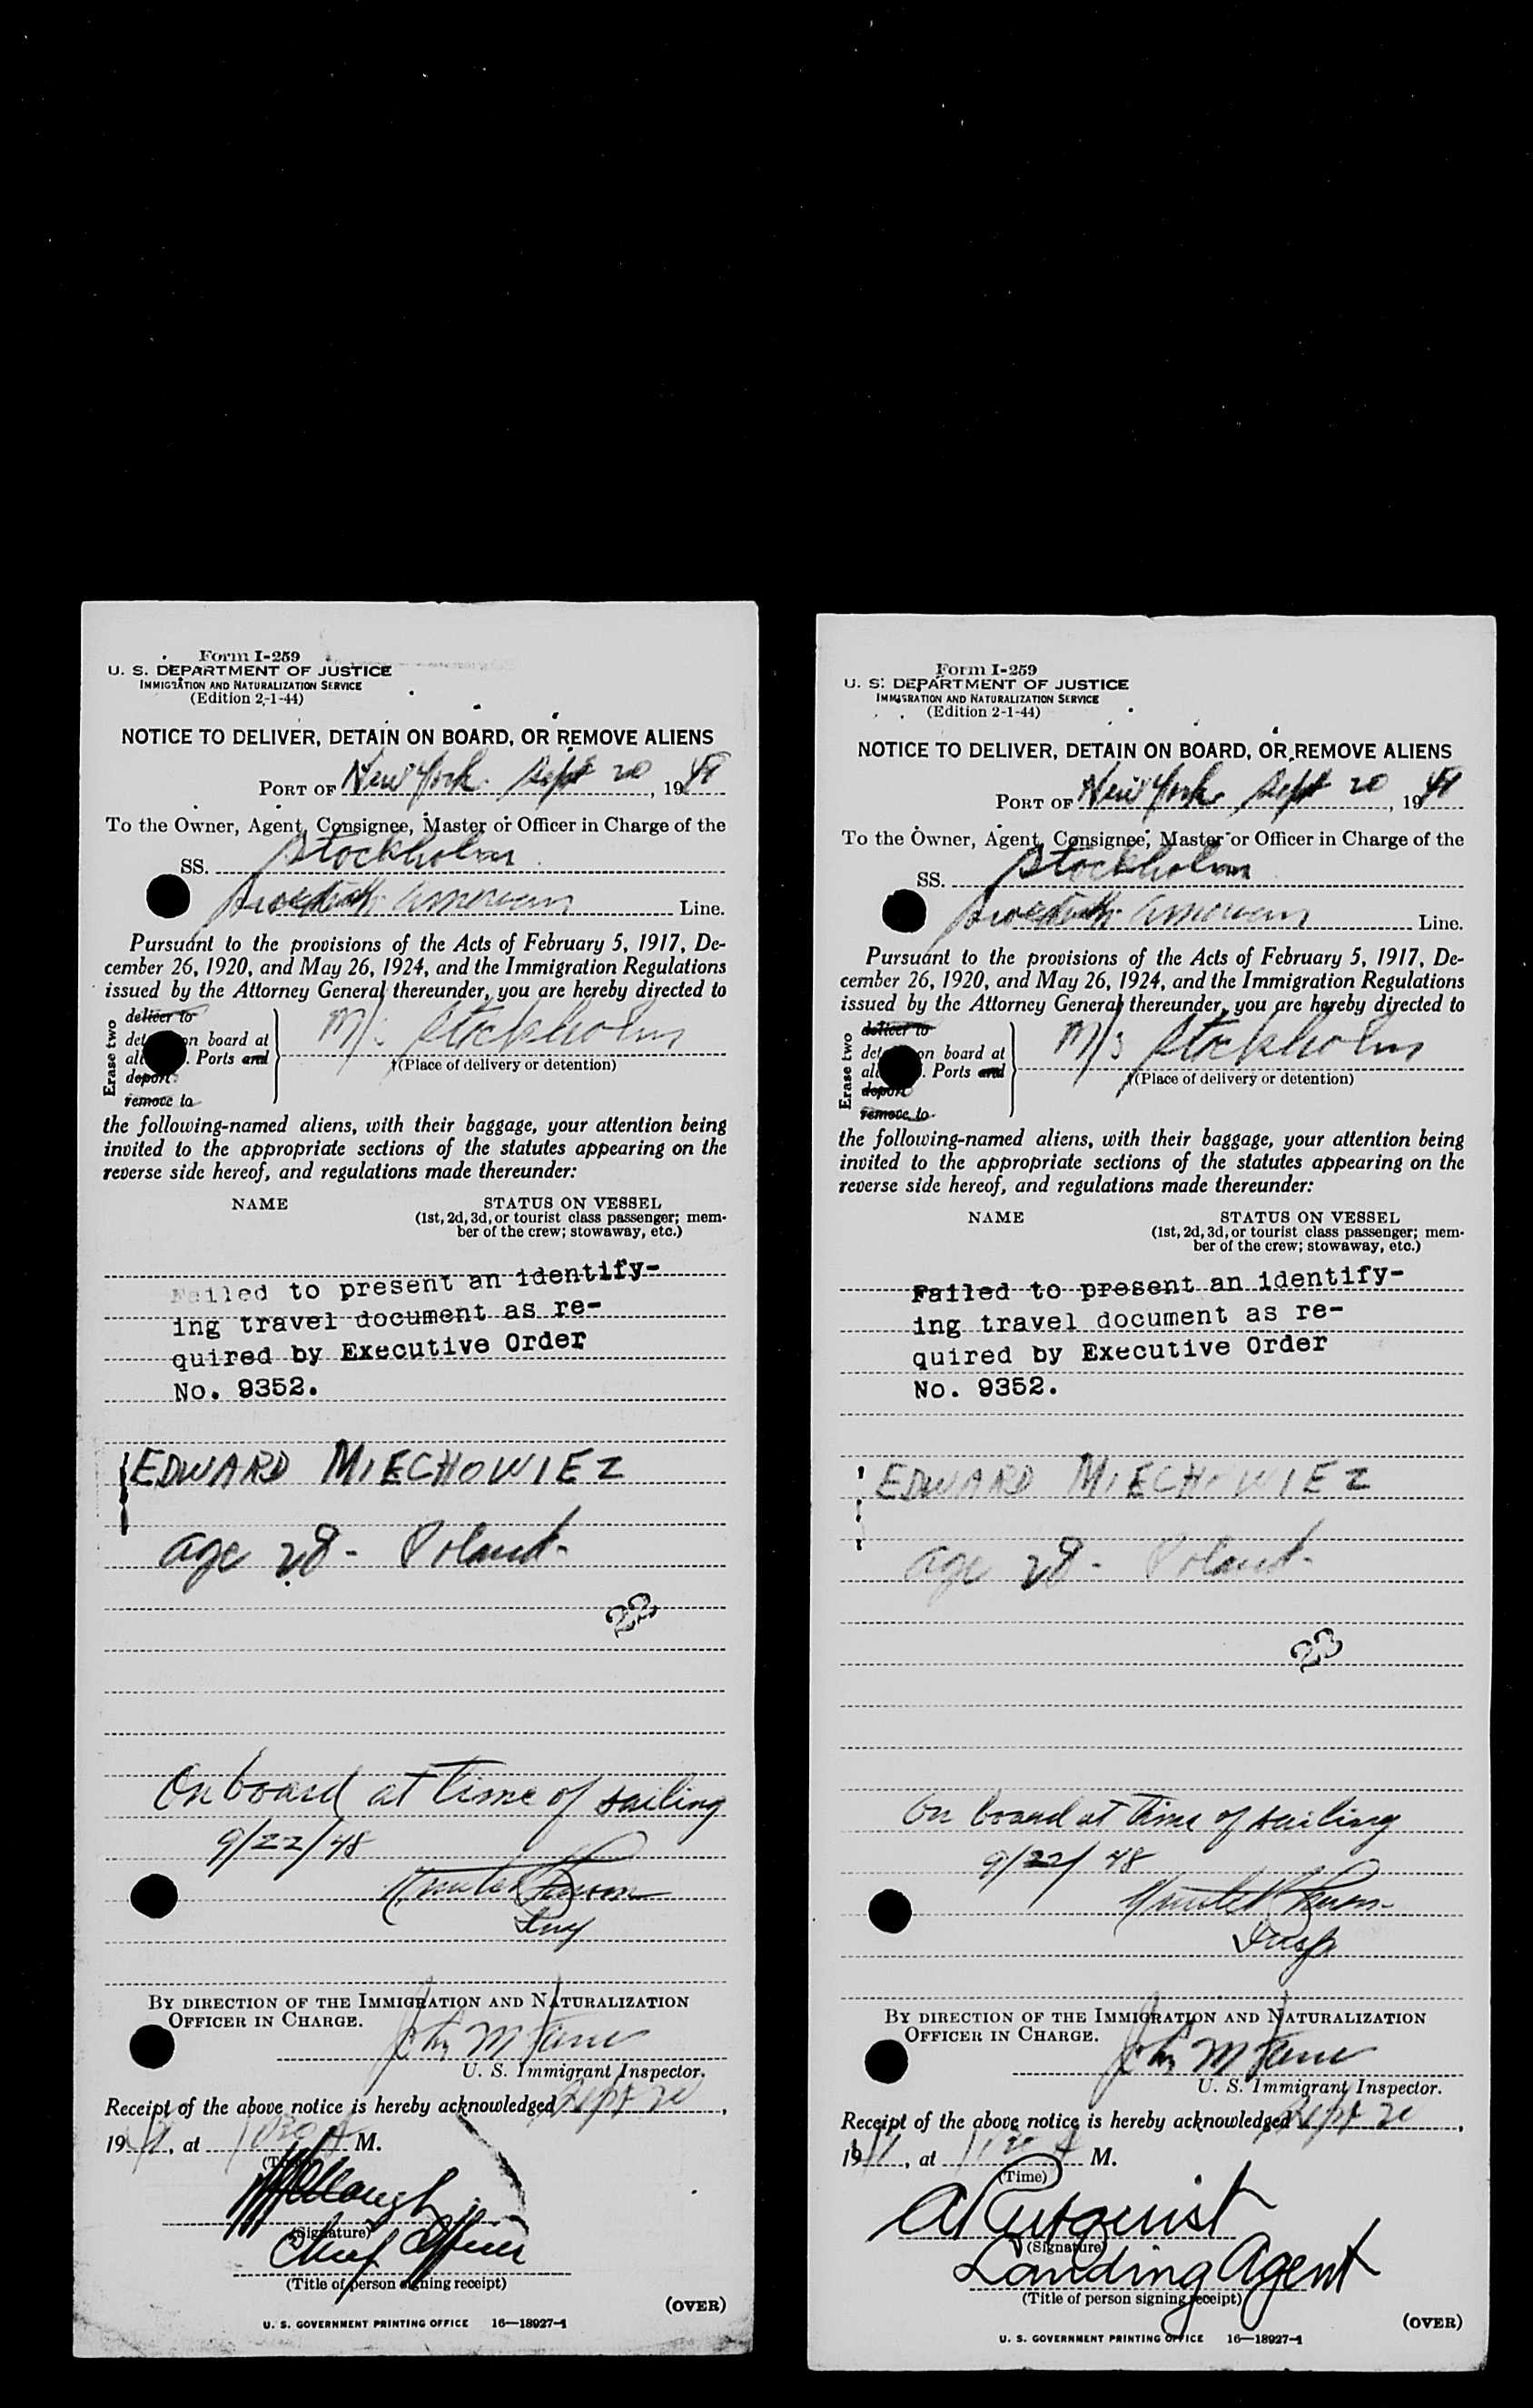 Form I-259
U. S. DEPARTMENT OF JUSTICE
IMMIGRATION AND NATURALIZATION SERVICE
(Edition 2-1-44)
NOTICE TO DELIVER, DETAIN ON BOARD, OR REMOVE ALIENS
PORT OF New York Sept 20, 1948
To the Owner, Agent, Consignee, Master or Officer in Charge of the
SS. Stockholm
American Line.
Pursuant to the provisions of the Acts of February 5, 1917, De-
cember 26, 1920, and May 26, 1924, and the Immigration Regulations
issued by the Attorney General thereunder, you are hereby directed to
Erase two
deliver to
det on board at
all . Ports and
deport
remove to
M/S Stockholm
(Place of delivery or detention)
the following-named aliens, with their baggage, your attention being
invited to the appropriate sections of the statutes appearing on the
reverse side hereof, and regulations made thereunder:
NAME STATUS ON VESSEL
(1st, 2d, 3d, or tourist class passenger; mem-
ber of the crew; stowaway, etc.)
Failed to present an identify-
ing travel document as re-
quired by Executive Order
No. 9352.
EDWARD MIECHOWIEZ
age 28 - Poland-
22
On board at time of sailing
9/22/48
BY DIRECTION OF THE IMMIGRATION AND NATURALIZATION
OFFICER IN CHARGE.
John M
U. S. Immigrant Inspector.
Receipt of the above notice is hereby acknowledged Sept 20,
1948, at A M.
(Signature)
Chief Officer
(Title of person signing receipt)
(OVER)
U. S. GOVERNMENT PRINTING OFFICE 16—18927-1
Form I-259
U. S. DEPARTMENT OF JUSTICE
IMMIGRATION AND NATURALIZATION SERVICE
(Edition 2-1-44)
NOTICE TO DELIVER, DETAIN ON BOARD, OR REMOVE ALIENS
PORT OF New York Sept 20, 1948
To the Owner, Agent, Consignee, Master or Officer in Charge of the
SS. Stockholm
American Line.
Pursuant to the provisions of the Acts of February 5, 1917, De-
cember 26, 1920, and May 26, 1924, and the Immigration Regulations
issued by the Attorney General thereunder, you are hereby directed to
Erase two
deliver to
det on board at
all . Ports and
deport
remove to
M/S Stockholm
(Place of delivery or detention)
the following-named aliens, with their baggage, your attention being
invited to the appropriate sections of the statutes appearing on the
reverse side hereof, and regulations made thereunder:
NAME STATUS ON VESSEL
(1st, 2d, 3d, or tourist class passenger; mem-
ber of the crew; stowaway, etc.)
Failed to present an identify-
ing travel document as re-
quired by Executive Order
No. 9352.
EDWARD MIECHOWIEZ
age 28 - Poland-
23
On board at time of sailing
9/22/48
Insp
BY DIRECTION OF THE IMMIGRATION AND NATURALIZATION
OFFICER IN CHARGE.
John M
U. S. Immigrant Inspector.
Receipt of the above notice is hereby acknowledged Sept 20,
1948, at A M.
(Time)
A Rutquist
(Signature)
Landing Agent
(Title of person signing receipt)
(OVER)
U. S. GOVERNMENT PRINTING OFFICE 16—18927-1